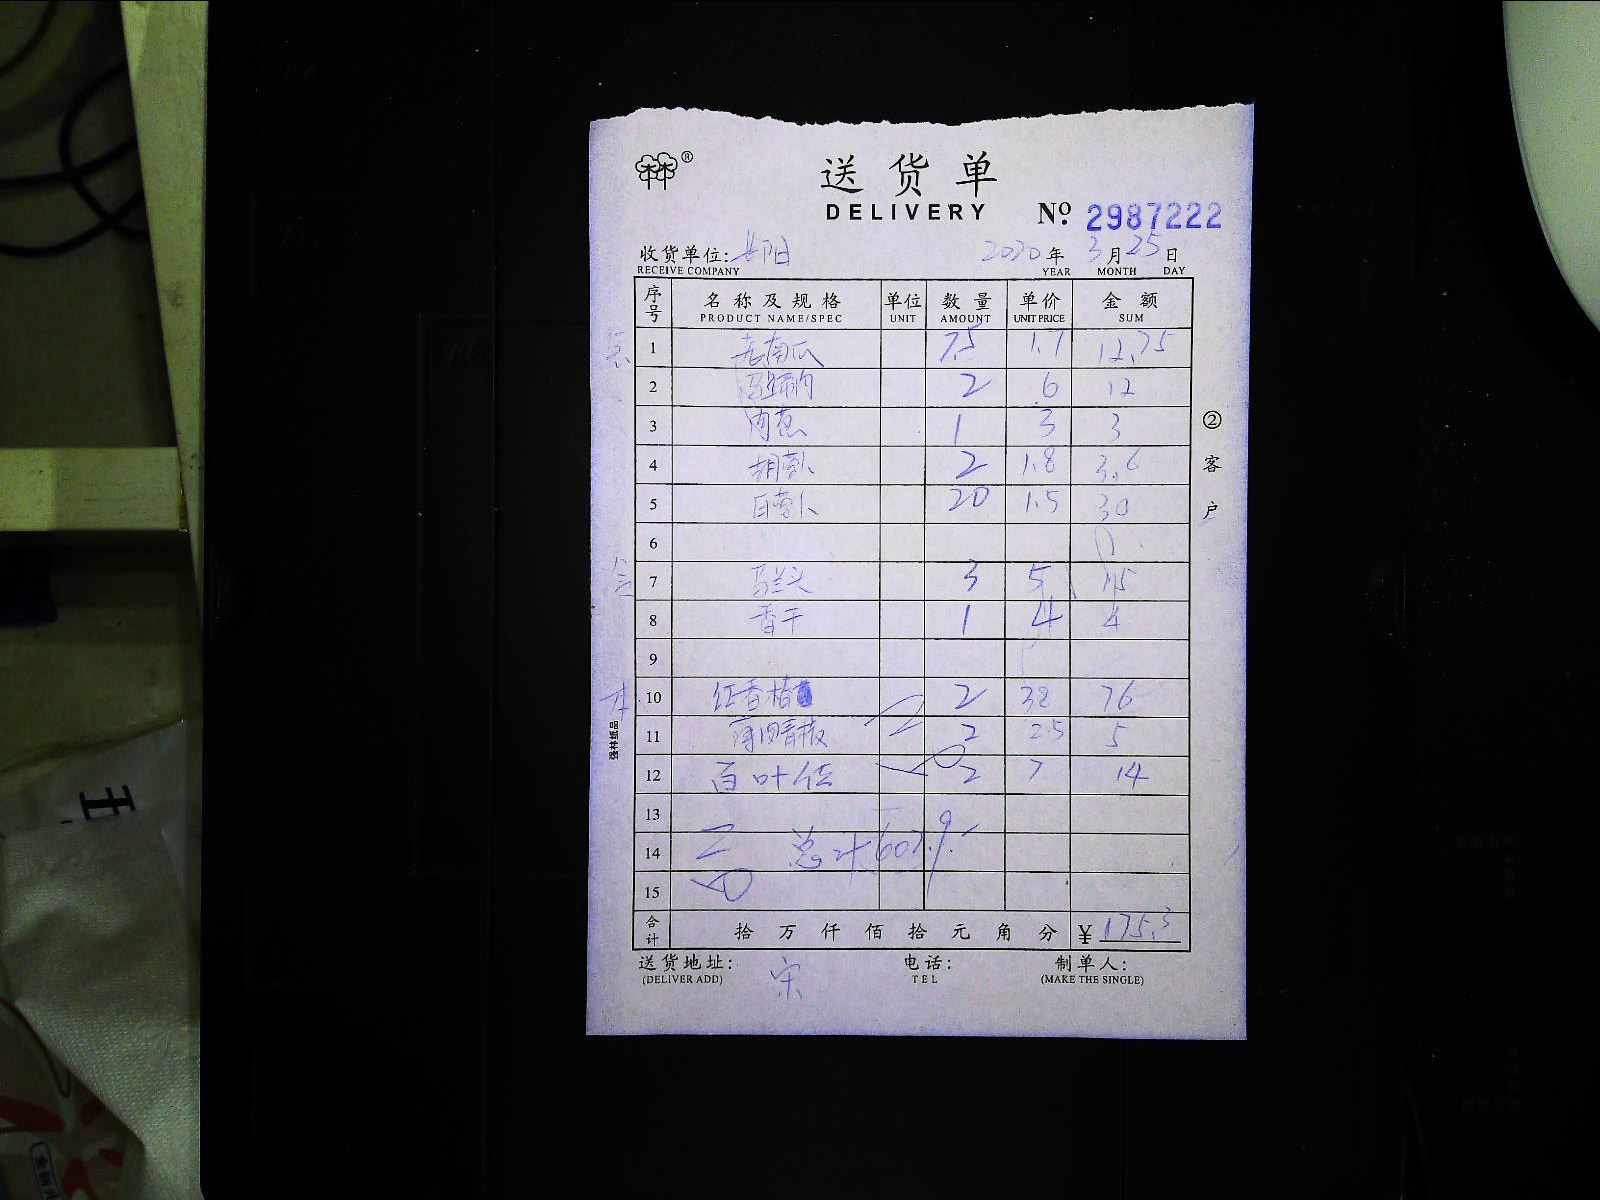 送货单
DELIVERY
№ 2987222
收货单位:
2020年 3月25日
RECEIVE COMPANY YEAR MONTH DAY
序号 名称及规格 单位 数量 单价 金额
PRODUCT NAME/SPEC UNIT AMOUNT UNIT PRICE SUM
1 老南瓜 7.5 1.7 12.75
2 2 6 12
3 肉葱 1 3 3
4 胡萝卜 2 1.8 3.6
5 白萝卜 20 1.5 30
6
7 马兰头 3 5 15
8 香干 1 4 4
9
10 红香椿 2 38 76
11 薄肉青椒 2 2.5 5
12 百叶结 2 7 14
13
14 总计607.9
15
合计 拾 万 仟 佰 拾 元 角 分 ¥ 175.3
送货地址: 宋 电话: 制单人:
(DELIVER ADD) TEL (MAKE THE SINGLE)
②客户
强林纸品